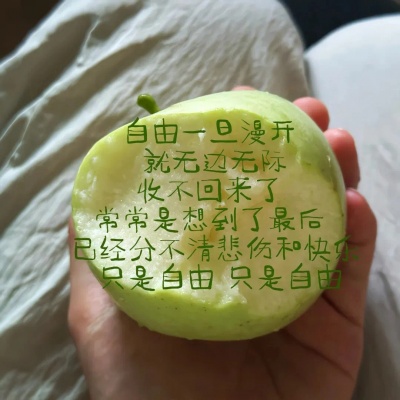 自由一旦漫开
就无边无际
收不回来了
常常是想到了最后
已经分不清悲伤和快乐
只是自由 只是自由